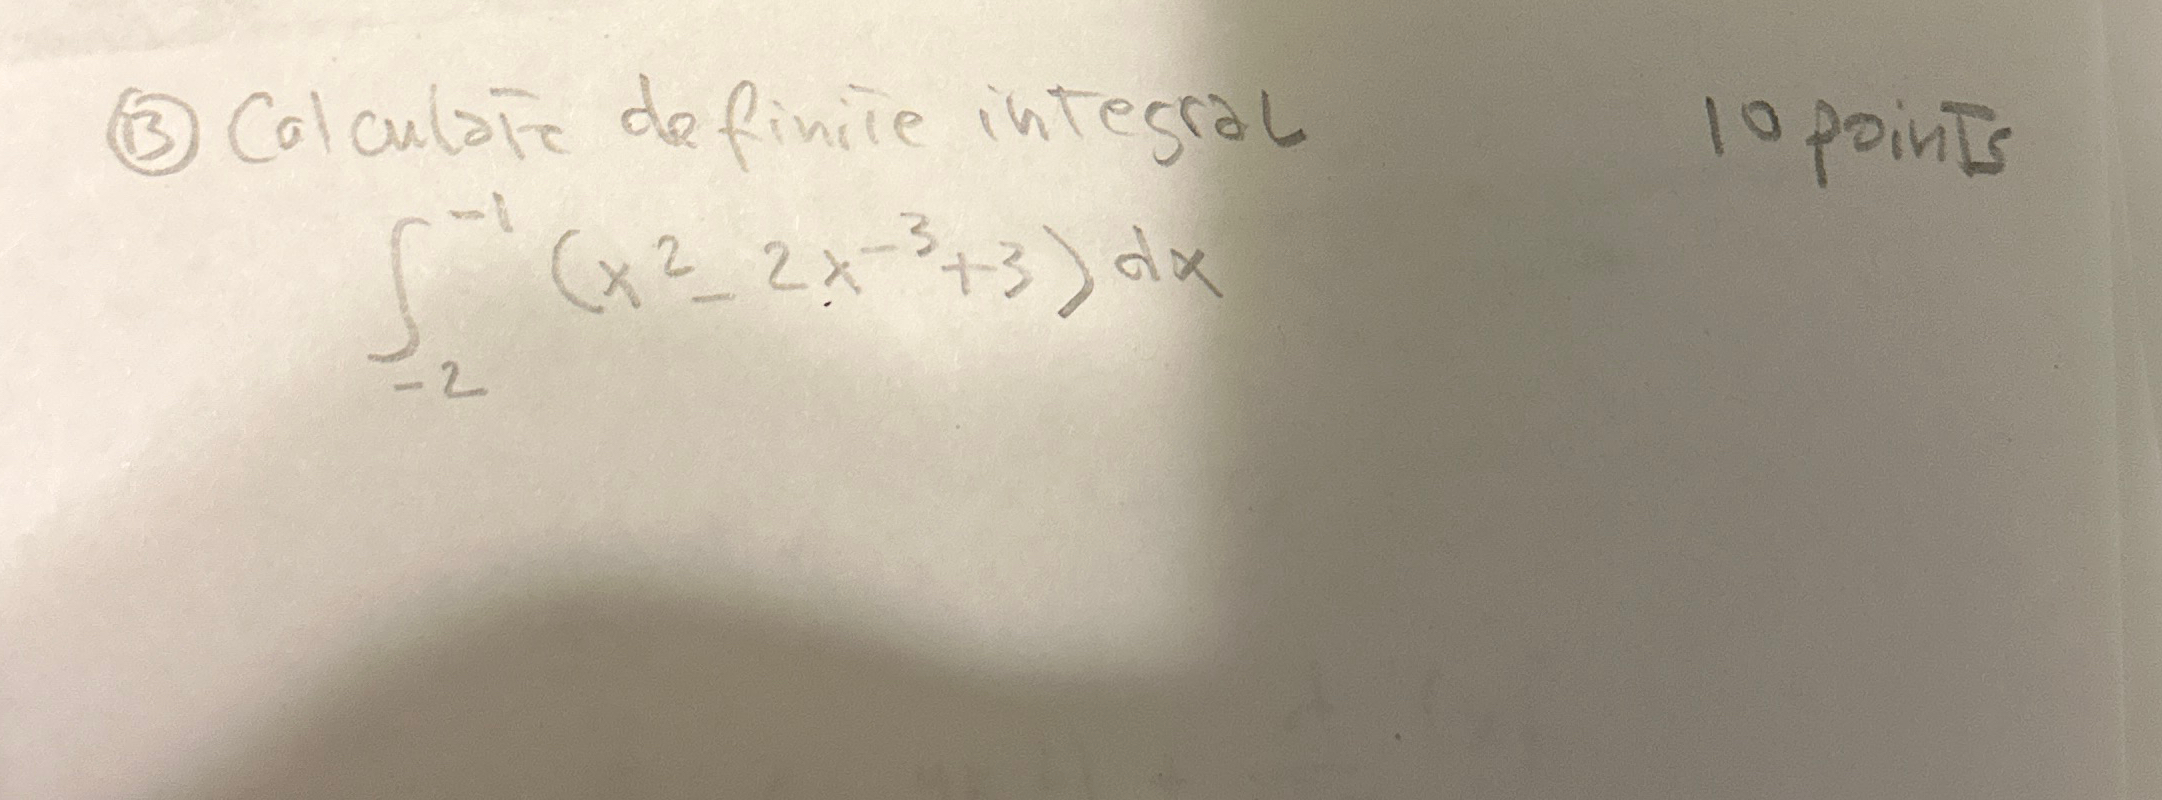 ⑬ Calculate definite integral 10 points
∫_{-2}^{-1} (x² - 2x⁻³ + 3) dx